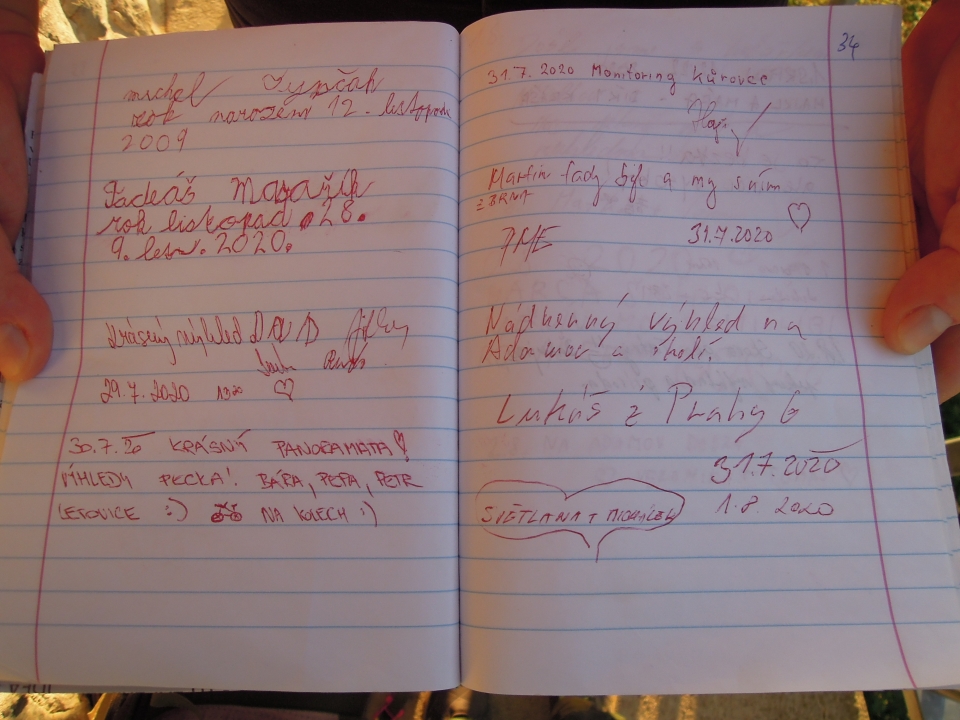 michel
rok narození 12. listopadu
2009
Tadeáš
rok listopad 28.
9. 2020.
Krásný výhled DAVID
29.7.2020 1320
30.7.20 KRÁSNÝ PANORAMATA!
VÝHLEDY PECKA! BÁRA, PEPA, PETR
LETOVICE :) NA KOLECH :)
34
31.7.2020 Monitoring kůrovec
Martin tady byl a my s ním
z BRNA
31.7.2020
Nádherný výhled na
Adamov a okolí.
Lukáš z Prahy 6
31.7.2020
SVĚTLANA + 1.8.2020